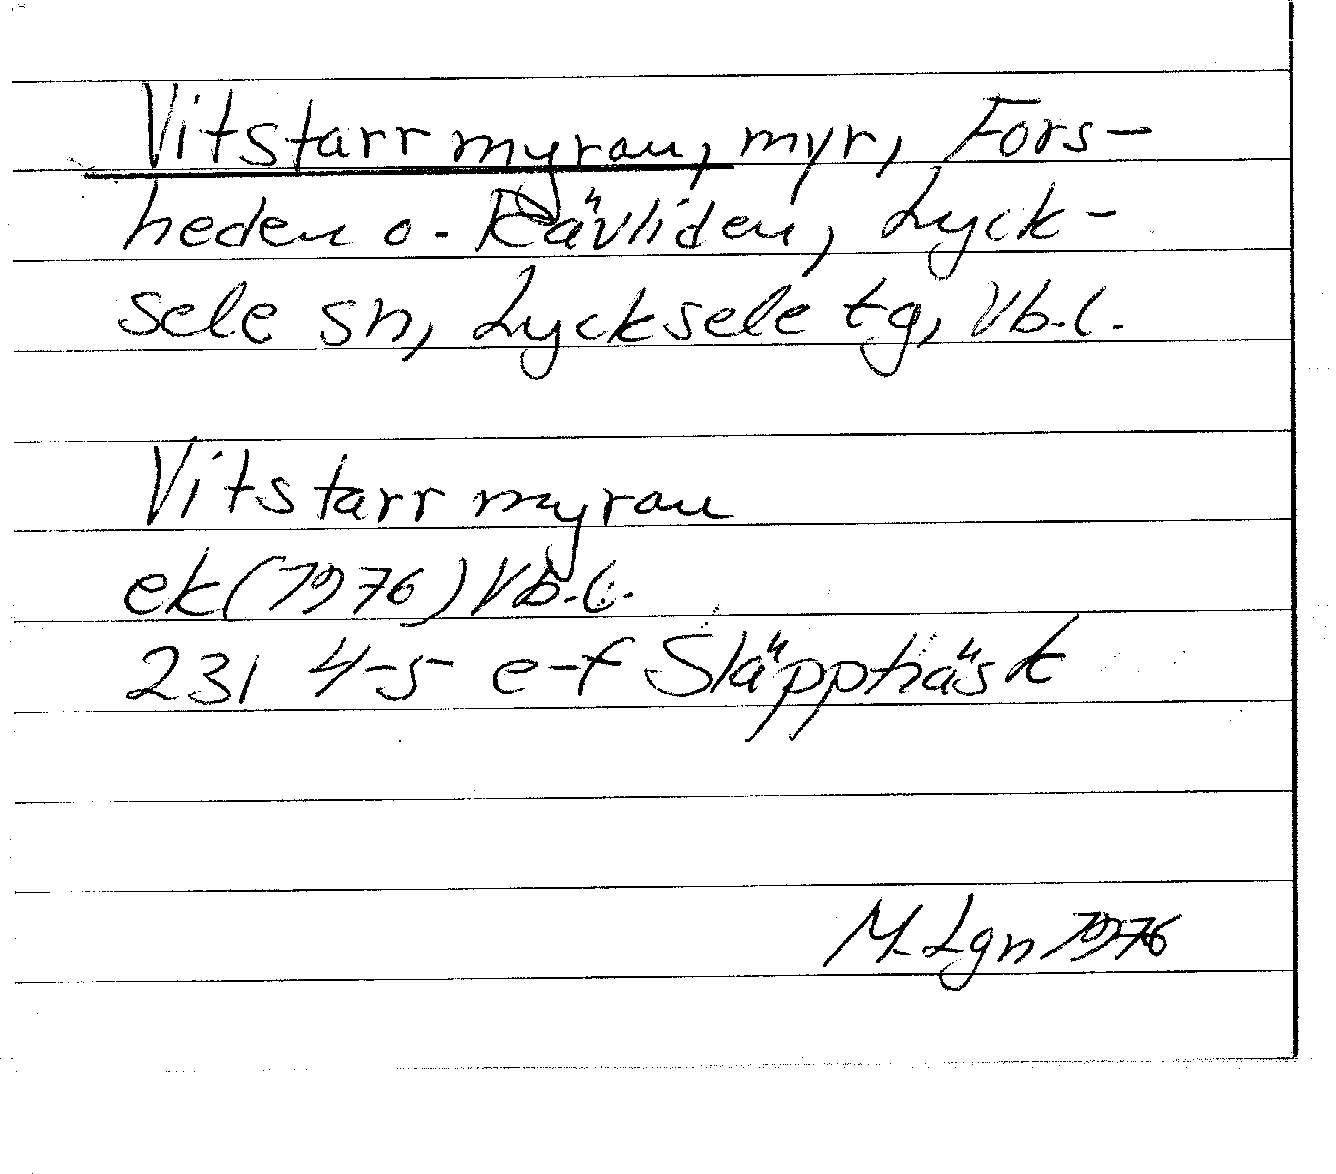 Vitstarrmyran, myr, Fors-
heden o. Rävliden, Lyck-
sele sn, Lycksele tg, Vb.l.
Vitstarrmyran
ek(1976)Vb.l.
231 4-5 e-f Släppträsk
M. Lgn 1976